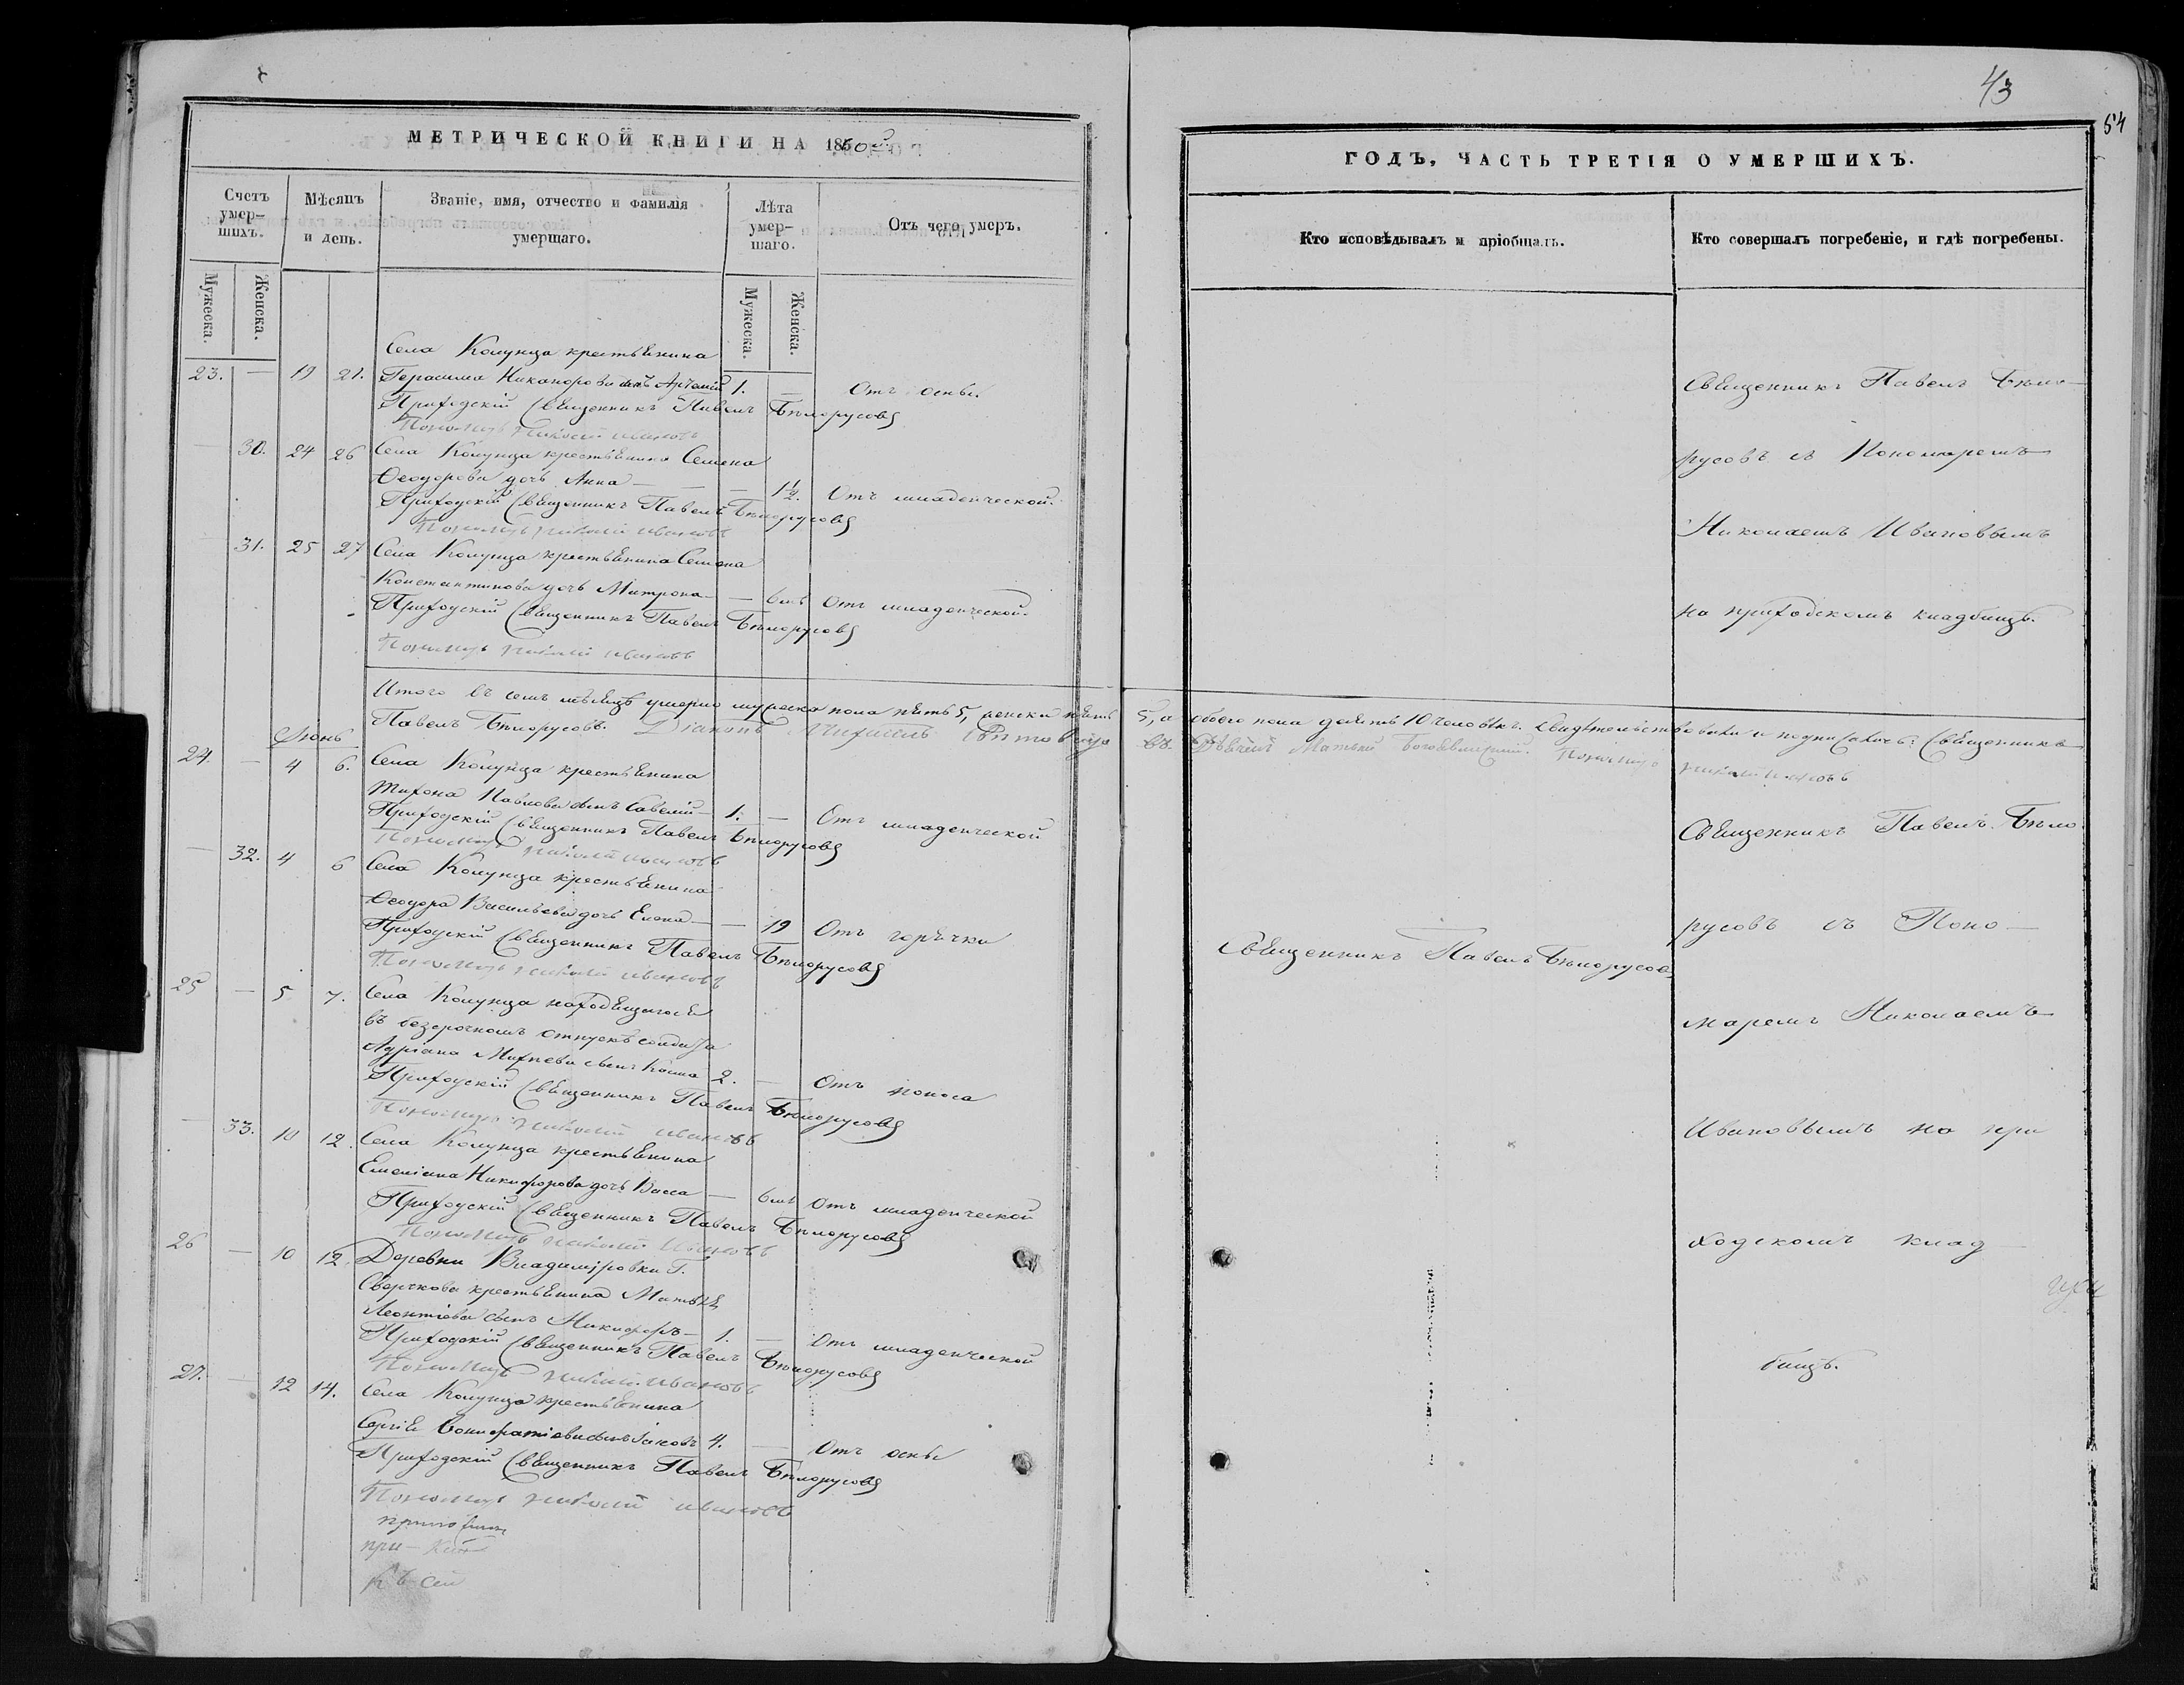 43
54
МЕТРИЧЕСКОЙ КНИГИ НА 1860й
ГОДЪ, ЧАСТЬ ТРЕТІЯ О УМЕРШИХЪ.
Счетъ умер-шихъ.
Мѣсяцъ и день.
Званіе, имя, отчество и фамилія умершаго.
Лѣта умер-шаго.
Отъ чего умеръ.
Кто исповѣдывалъ и пріобщалъ.
Кто совершалъ погребеніе, и гдѣ погребены.
Мужеска.
Женска.
Мужеска.
Женска.
Села Колунца крестьянина
23. — 19 21. Герасима Никанорова сынъ Артемій 1. — Отъ оспы.
Приходскій Священникъ Павелъ Бѣлорусовъ
Пономарь Николай Ивановъ
— 30. 24 26 Села Колунца крестьянина Семена
Ѳеодорова дочь Анна — — 1½. Отъ младенческой.
Приходскій Священникъ Павелъ Бѣлорусовъ
Пономарь Николай Ивановъ
31. 25 27 Села Колунца крестьянина Семена
Константинова дочь Матрона — — 6 мѣ Отъ младенческой.
Приходскій Священникъ Павелъ Бѣлорусовъ
Пономарь Николай Ивановъ
Священникъ Павелъ Бѣло-
русовъ съ Пономаремъ
Николаемъ Ивановымъ
на приходскомъ кладбищѣ.
Итого въ семъ мѣсяцѣ умерло мужеска пола пять 5, женска пять 5, а обоего пола десять 10 человѣкъ. Свидѣтельствовали и подписались: Священникъ
Павелъ Бѣлорусовъ. Діаконъ Михаилъ Пономарь Николай Ивановъ
Іюнь
24. — 4 6. Села Колунца крестьянина
Тихона Павлова сынъ Савелій — 1. — Отъ младенческой
Приходскій Священникъ Павелъ Бѣлорусовъ
Пономарь Николай Ивановъ
— 32. 4 6 Села Колунца крестьянина
Ѳеодора Васильева дочь Елена — — 19 Отъ горячки
Приходскій Священникъ Павелъ Бѣлорусовъ
Пономарь Николай Ивановъ
Священникъ Павелъ Бѣлорусовъ
25 — 5 7. Села Колунца находящагося
въ безсрочномъ отпускѣ солдата
Адріана Михеева сынъ Косма 2. — Отъ поноса
Приходскій Священникъ Павелъ Бѣлорусовъ
Пономарь Николай Ивановъ
— 33. 10 12. Села Колунца крестьянина
Емеліана Никифорова дочь Васса — 6 мѣ Отъ младенческой
Приходскій Священникъ Павелъ Бѣлорусовъ
Пономарь Николай Ивановъ
26 — 10 12. Деревни Владимровки Г.
Сверчкова крестьянина Матвѣя
Леонтіева сынъ Никифоръ — 1. — Отъ младенческой
Приходскій Священникъ Павелъ Бѣлорусовъ
Пономарь Николай Ивановъ
27. — 12 14. Села Колунца крестьянина
Сергія Вонифатіева сынъ Іаковъ 4. — Отъ оспы
Приходскій Священникъ Павелъ Бѣлорусовъ
Пономарь Николай Ивановъ
Священникъ Павелъ Бѣло
русовъ съ Поно-
маремъ Николаемъ
Ивановымъ на при
ходскомъ клад
бищѣ.